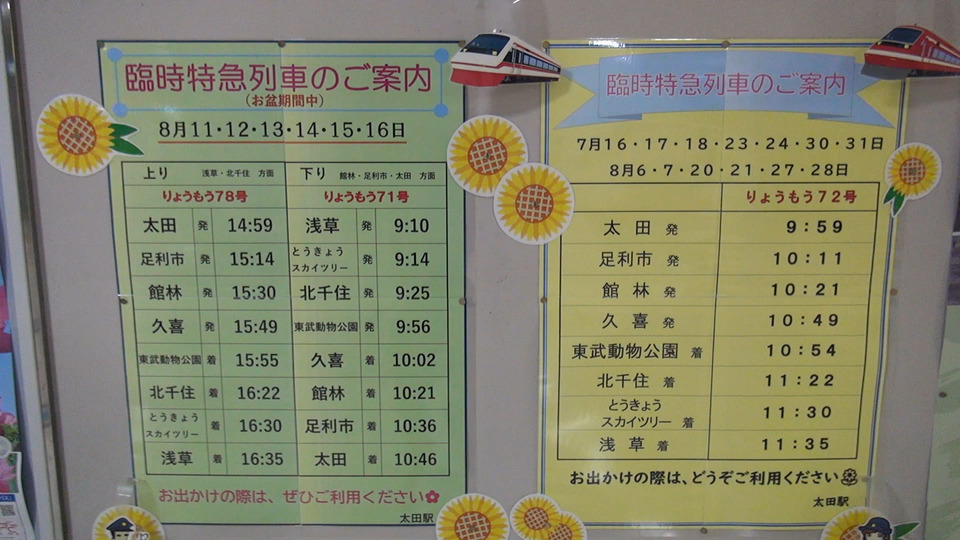 臨時特急列車のご案内
(お盆期間中)
8月11・12・13・14・15・16日
上り 浅草・北千住 方面 下り 館林・足利市・太田 方面
りょうもう78号 りょうもう71号
太田 発 14:59 浅草 発 9:10
足利市 発 15:14 とうきょうスカイツリー 発 9:14
館林 発 15:30 北千住 発 9:25
久喜 発 15:49 東武動物公園 発 9:56
東武動物公園 着 15:55 久喜 着 10:02
北千住 着 16:22 館林 着 10:21
とうきょうスカイツリー 着 16:30 足利市 着 10:36
浅草 着 16:35 太田 着 10:46
お出かけの際は、ぜひご利用ください
太田駅
臨時特急列車のご案内
7月16・17・18・23・24・30・31日
8月6・7・20・21・27・28日
りょうもう72号
太田 発 9:59
足利市 発 10:11
館林 発 10:21
久喜 発 10:49
東武動物公園 着 10:54
北千住 着 11:22
とうきょうスカイツリー 着 11:30
浅草 着 11:35
お出かけの際は、どうぞご利用ください
太田駅